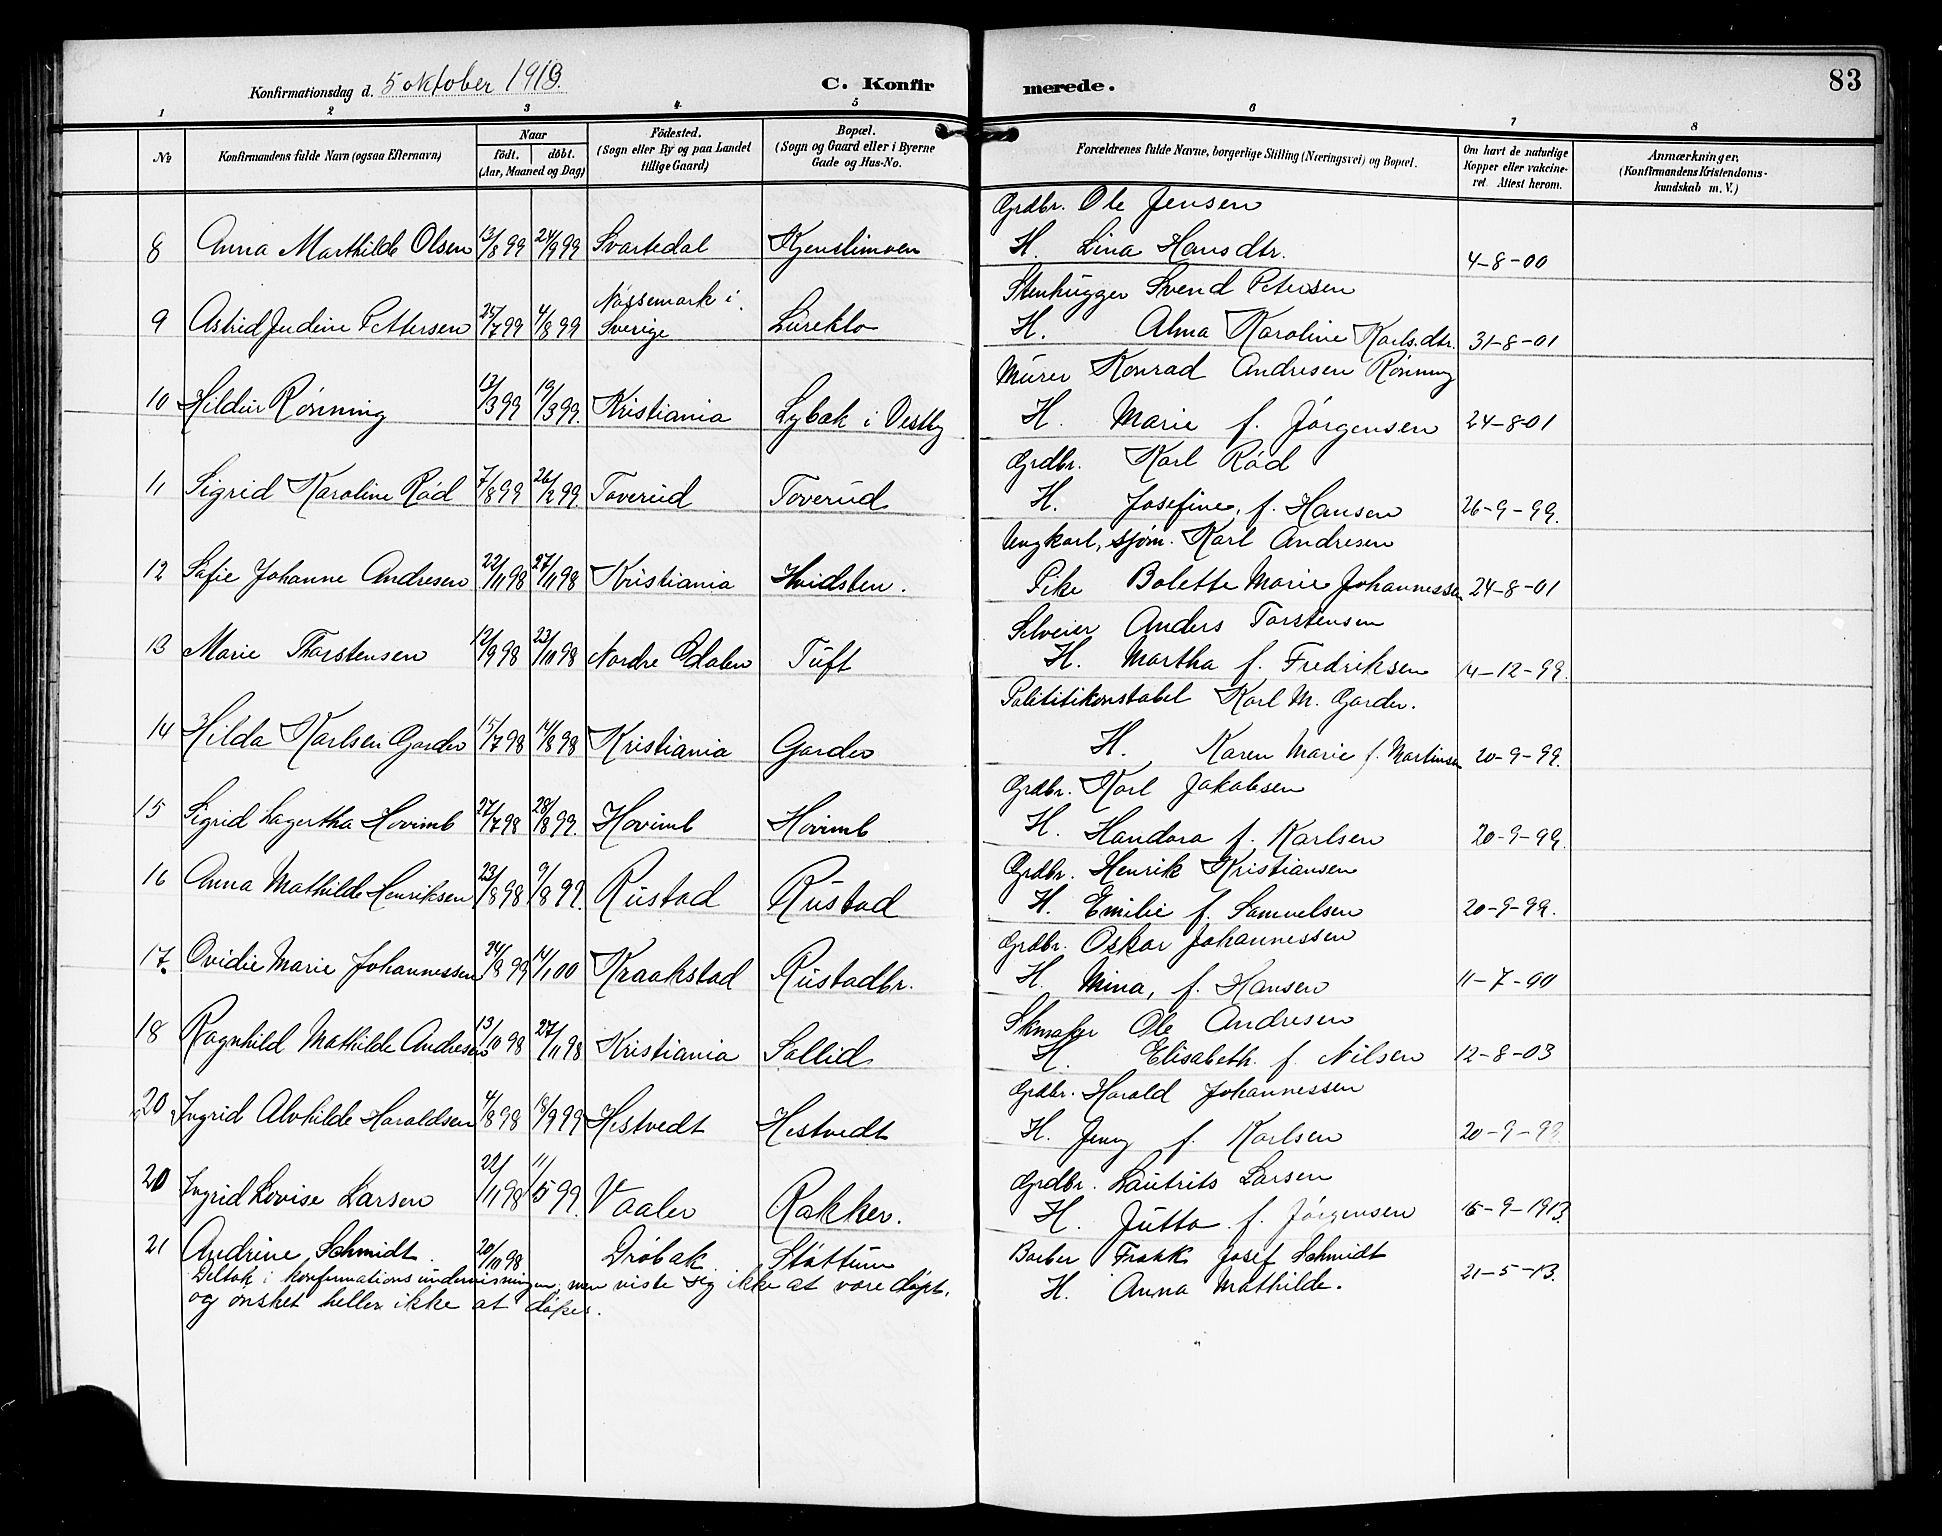 Konfirmationsdag d. 5 oktober 1913.
C. Konfirmerede.
83
1 2 3 4 5 6 7 8
No
Konfirmandens fulde Navn (ogsaa Efternavn)
Naar
födt. döbt.
(Aar, Maaned og Dag)
Födested.
(Sogn eller By og paa Landet
tillige Gaard)
Bopæl.
(Sogn og Gaard eller i Byerne
Gade og Hus-No.
Forældrenes fulde Navne, borgerlige Stilling (Næringsvei) og Bopæl.
Om havt de naturlige
Kopper eller vakcine-
ret. Attest herom.
Anmærkninger.
(Konfirmandens Kristendoms-
kundskab m. V.)
Grdbr. Ole Jensen
8 Anna Marthilde Olsen 13/8 99 24/9 99 Svartedal Kjenslimoen H. Lina Hansdtr. 4-8-00
Stenhugger Svend Petersen
9 Astrid Judine Pettersen 25/7 99 4/8 99 Nössemark i Sverige Lüreklo H. Alma Karoline Karlsdtr. 31-8-01
Mürer Konrad Andresen Rönning
10 Hildür Rönning 13/3 99 19/3 99. Kristiania Lybak i Vestby H. Marie f. Jörgensen 24-8-01
Grdbr. Karl Röd
11 Sigrid Karoline Röd 7/8 99 26/2 99. Toverüd Toverüd H. Josefine, f. Hansen 26-9-99.
Ungkarl, sjöm. Karl Andresen
12 Safie Johanne Andresen 22/11 98 27/11 98 Kristiania Hvidsten. Pike Bolette Marie Johannessen 24-8-01
Selveier Anders Torstensen
13 Marie Thorstensen 12/9 98 23/10 98 Nordre Odalen Tüft H. Martha f. Fredriksen 14-12-99.
Polititikonstabel Karl M. Garder.
14 Hilda Karlsen Garder 15/7 98 14/8 98 Kristiania Garder H. Karen Marie f. Martinsen 20-9-99.
Grdbr. Karl Jakobsen
15 Sigrid Lagertha Hovimb 27/7 98 28/8 99. Hovimb Hovimb H. Handora f. Karlsen 20-9-99.
Grdbr. Henrik Kristiansen
16 Anna Mathilde Henriksen 23/8 98 9/8 99. Rüstad Rüstad H. Emilie f. Samuelsen 20-9-99.
Grdbr. Oskar Johannessen
17. Ovidie Marie Johannessen 24/9 99 14/1 00 Kraakstad Rüstadbr. H. Mina, f. Hansen 11-7-00
Skmaker Ole Andresen
18 Ragnhild Mathilde Andresen 13/10 98 27/11 98 Kristiania Sollid H. Elisabeth f. Nilsen 12-8-03
Grdbr. Harald Johannessen
20 Ingrid Alvhilde Haraldsen 4/8 98 18/9 99 Hestvedt Hestvedt H. Jeny f. Karlsen 20-9-99.
Grdbr. Lauritz Larsen
20 Ingrid Lovise Larsen 22/11 98 11/5 99. Vaaler Rakker. H. Jütta f. Jörgensen 16-9-1913.
21 Andrine Schmidt. 20/11 98 Dröbak. Stöttum Barber Frank Josef Schmidt
H. Anna Mathilde. 21-5-13.
Deltok i konfirmationsundervisningen, men viste sig ikke at være döpt,
og ønsket heller ikke at döpes.